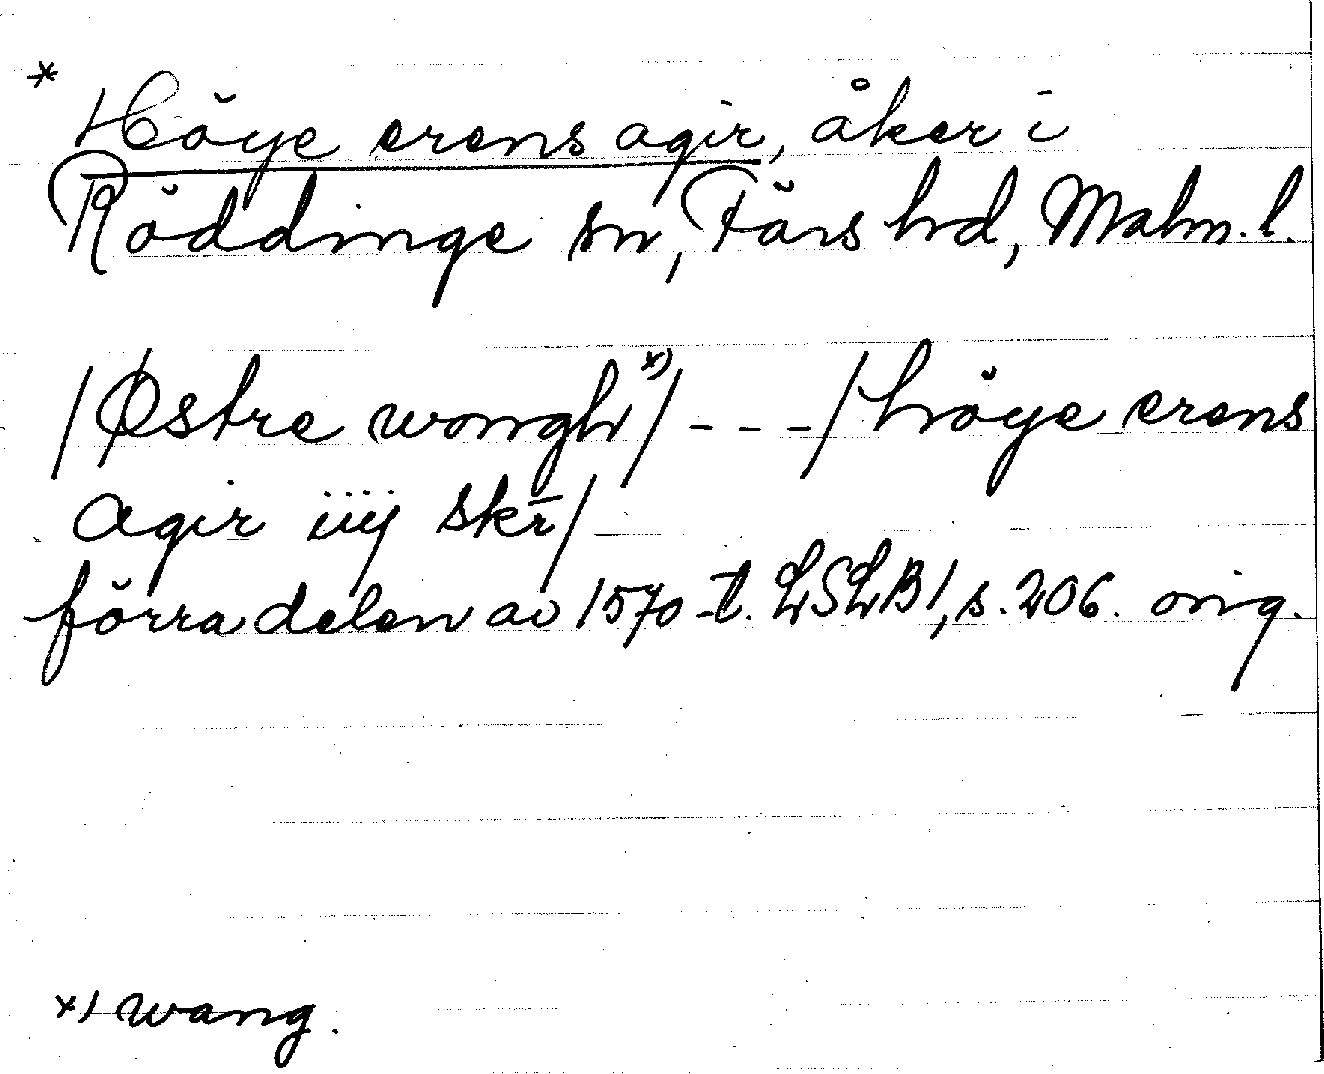 * Höye erens agir, åker i
Röddinge sn, Färs hd, Malm. l.
/Østre wongh *)/ - - - /höye erens
agir iiij skr̄/
förra delen av 1570-t. LSLB 1, s. 206. orig.
*) wang.